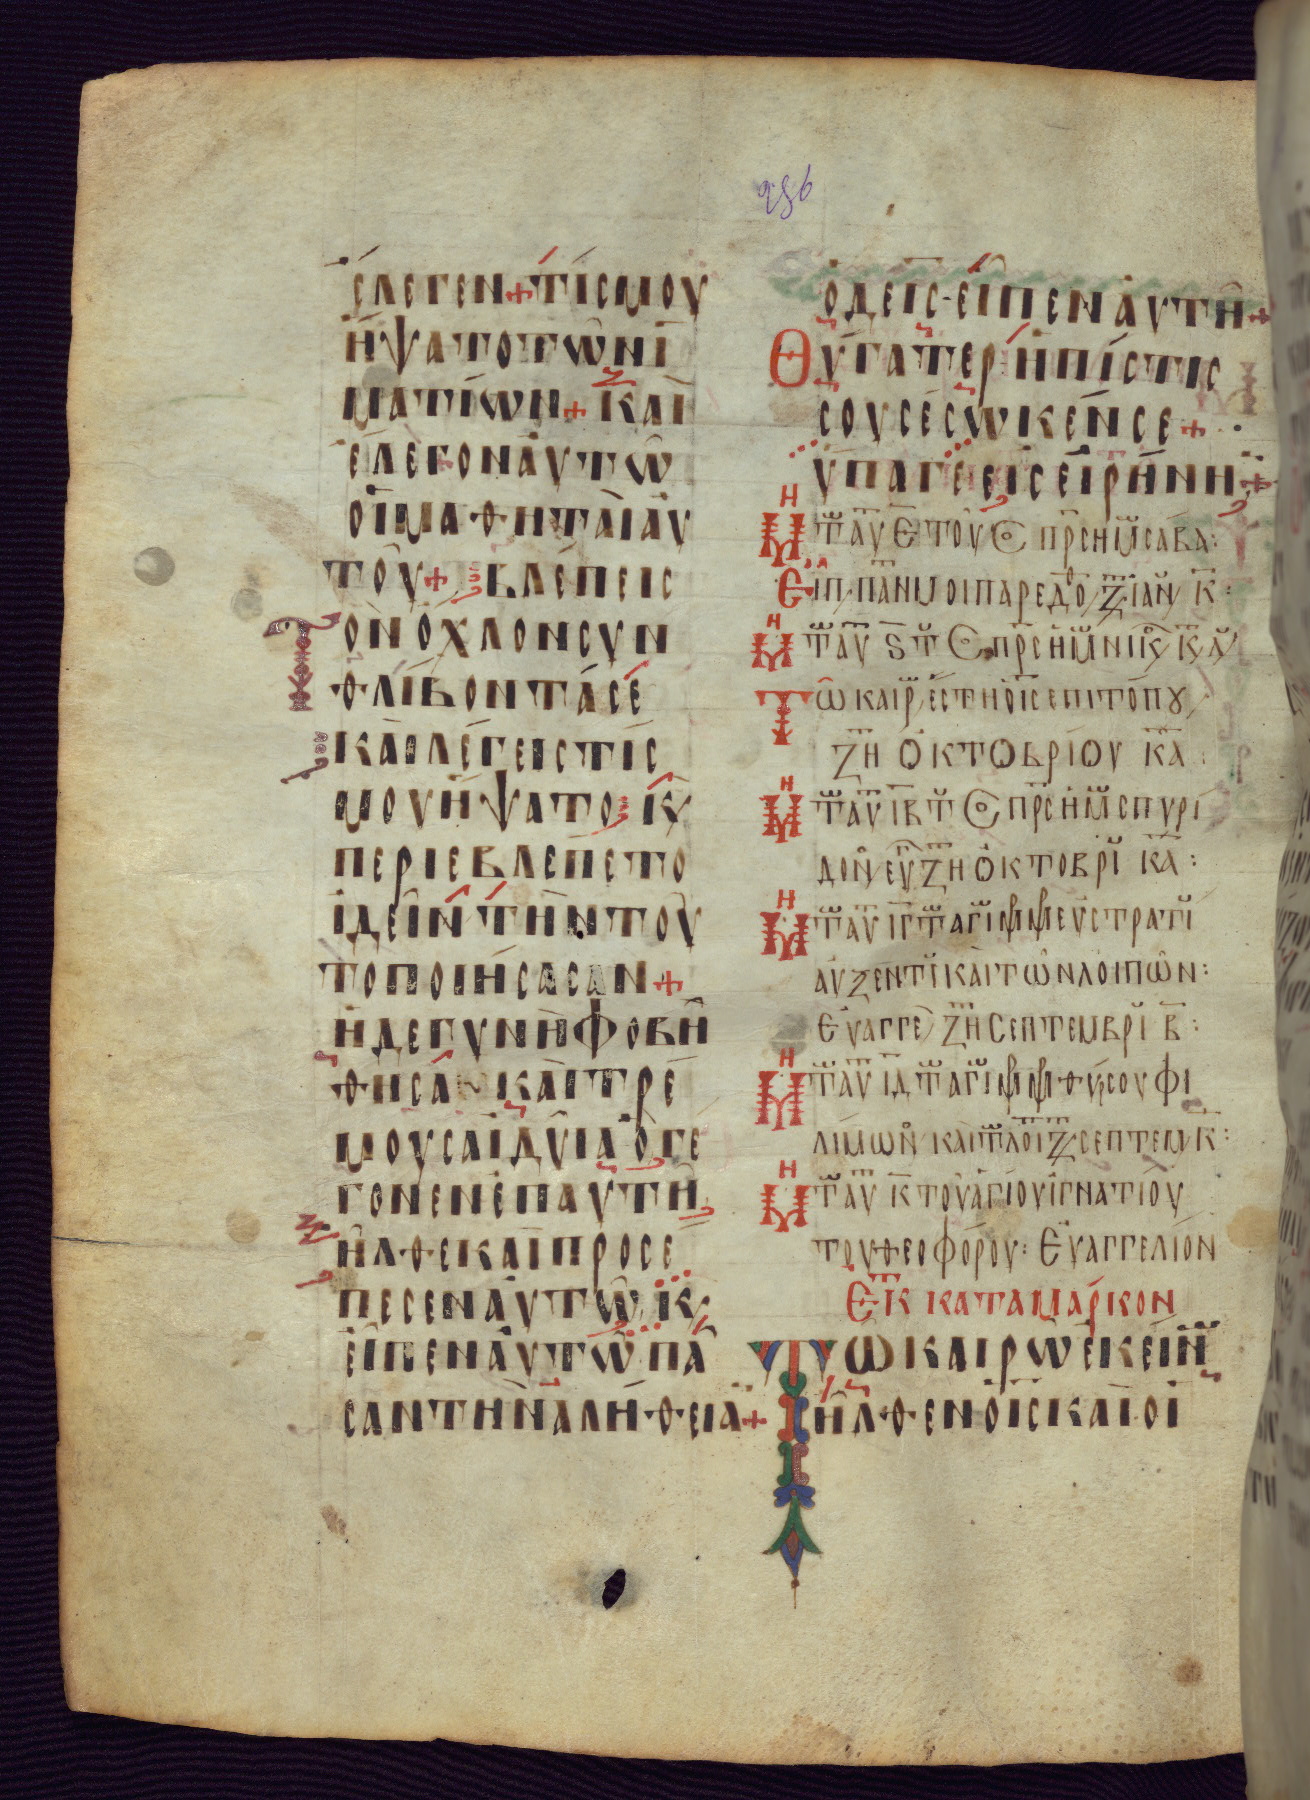 286
ἔλεγεν + τίς μου
ἥψατο τῶν ἱ
ματίων + καὶ
ἔλεγον αὐτῶ
οἱ μαθηταὶ αὐ
τοῦ + βλέπεις
Τὸν ὄχλον συν
θλίβοντά σέ
καὶ λέγεις τίς
μου ἥψατο κ
περιεβλέπετο
ἰδεῖν τὴν τοῦ
το ποιήσασαν +
ἡ δὲ γυνὴ φοβη
θησα καὶ τρέ
μουσα ἰδυῖα ὃ γέ
γονεν ἐπ αὐτῆ
ἦλθε καὶ προσέ
πεσεν αὐτῶ κ
εἶπεν αὐτῶ πᾶ
σαν τὴν ἀλήθεια +
ὁ δὲ ΙΣ εἶπεν αὐτῆ +
Θύγατερ ἡ πίστις
σου σέσωκέν σε +
ὕπαγε εἰς εἰρήνη +
Μη τ αυ Ε του ο πρς ημ σαβα :
Εἶπ πάν μοι παρεδο ζ ιαν κ :
Μη τ αυ ς τ ο πρς ημ νικ κ
Τῶ καιρ ἔστη ὁ ις ἐπι τόπου
ζη ὀκτοβρίου κα :
Μη τ αυ ιβ τ ο πρς ημ σπυρι
δον ευ ζη ὀκτοβρι κα :
Μη τ αυ ιγ τ αγι μμ εὐστρατι
αυξεντι καὶ τῶν λοιπῶν :
Εὐαγγε ζη σεπτεμβρι β :
Μη τ αυ ιδ τ αγι μμ θύρσου φι
λιμων και τ λοι ζ σεπτεμ κ :
Μη τ αυ κ του ἁγίου ἰγνατίου
του θεοφόρου : Εὐαγγελίον
Εκ κατα μάρκον
Τῶ καιρῶ ἐκείν
ἦλθεν ὁ ΙΣ καὶ οἱ